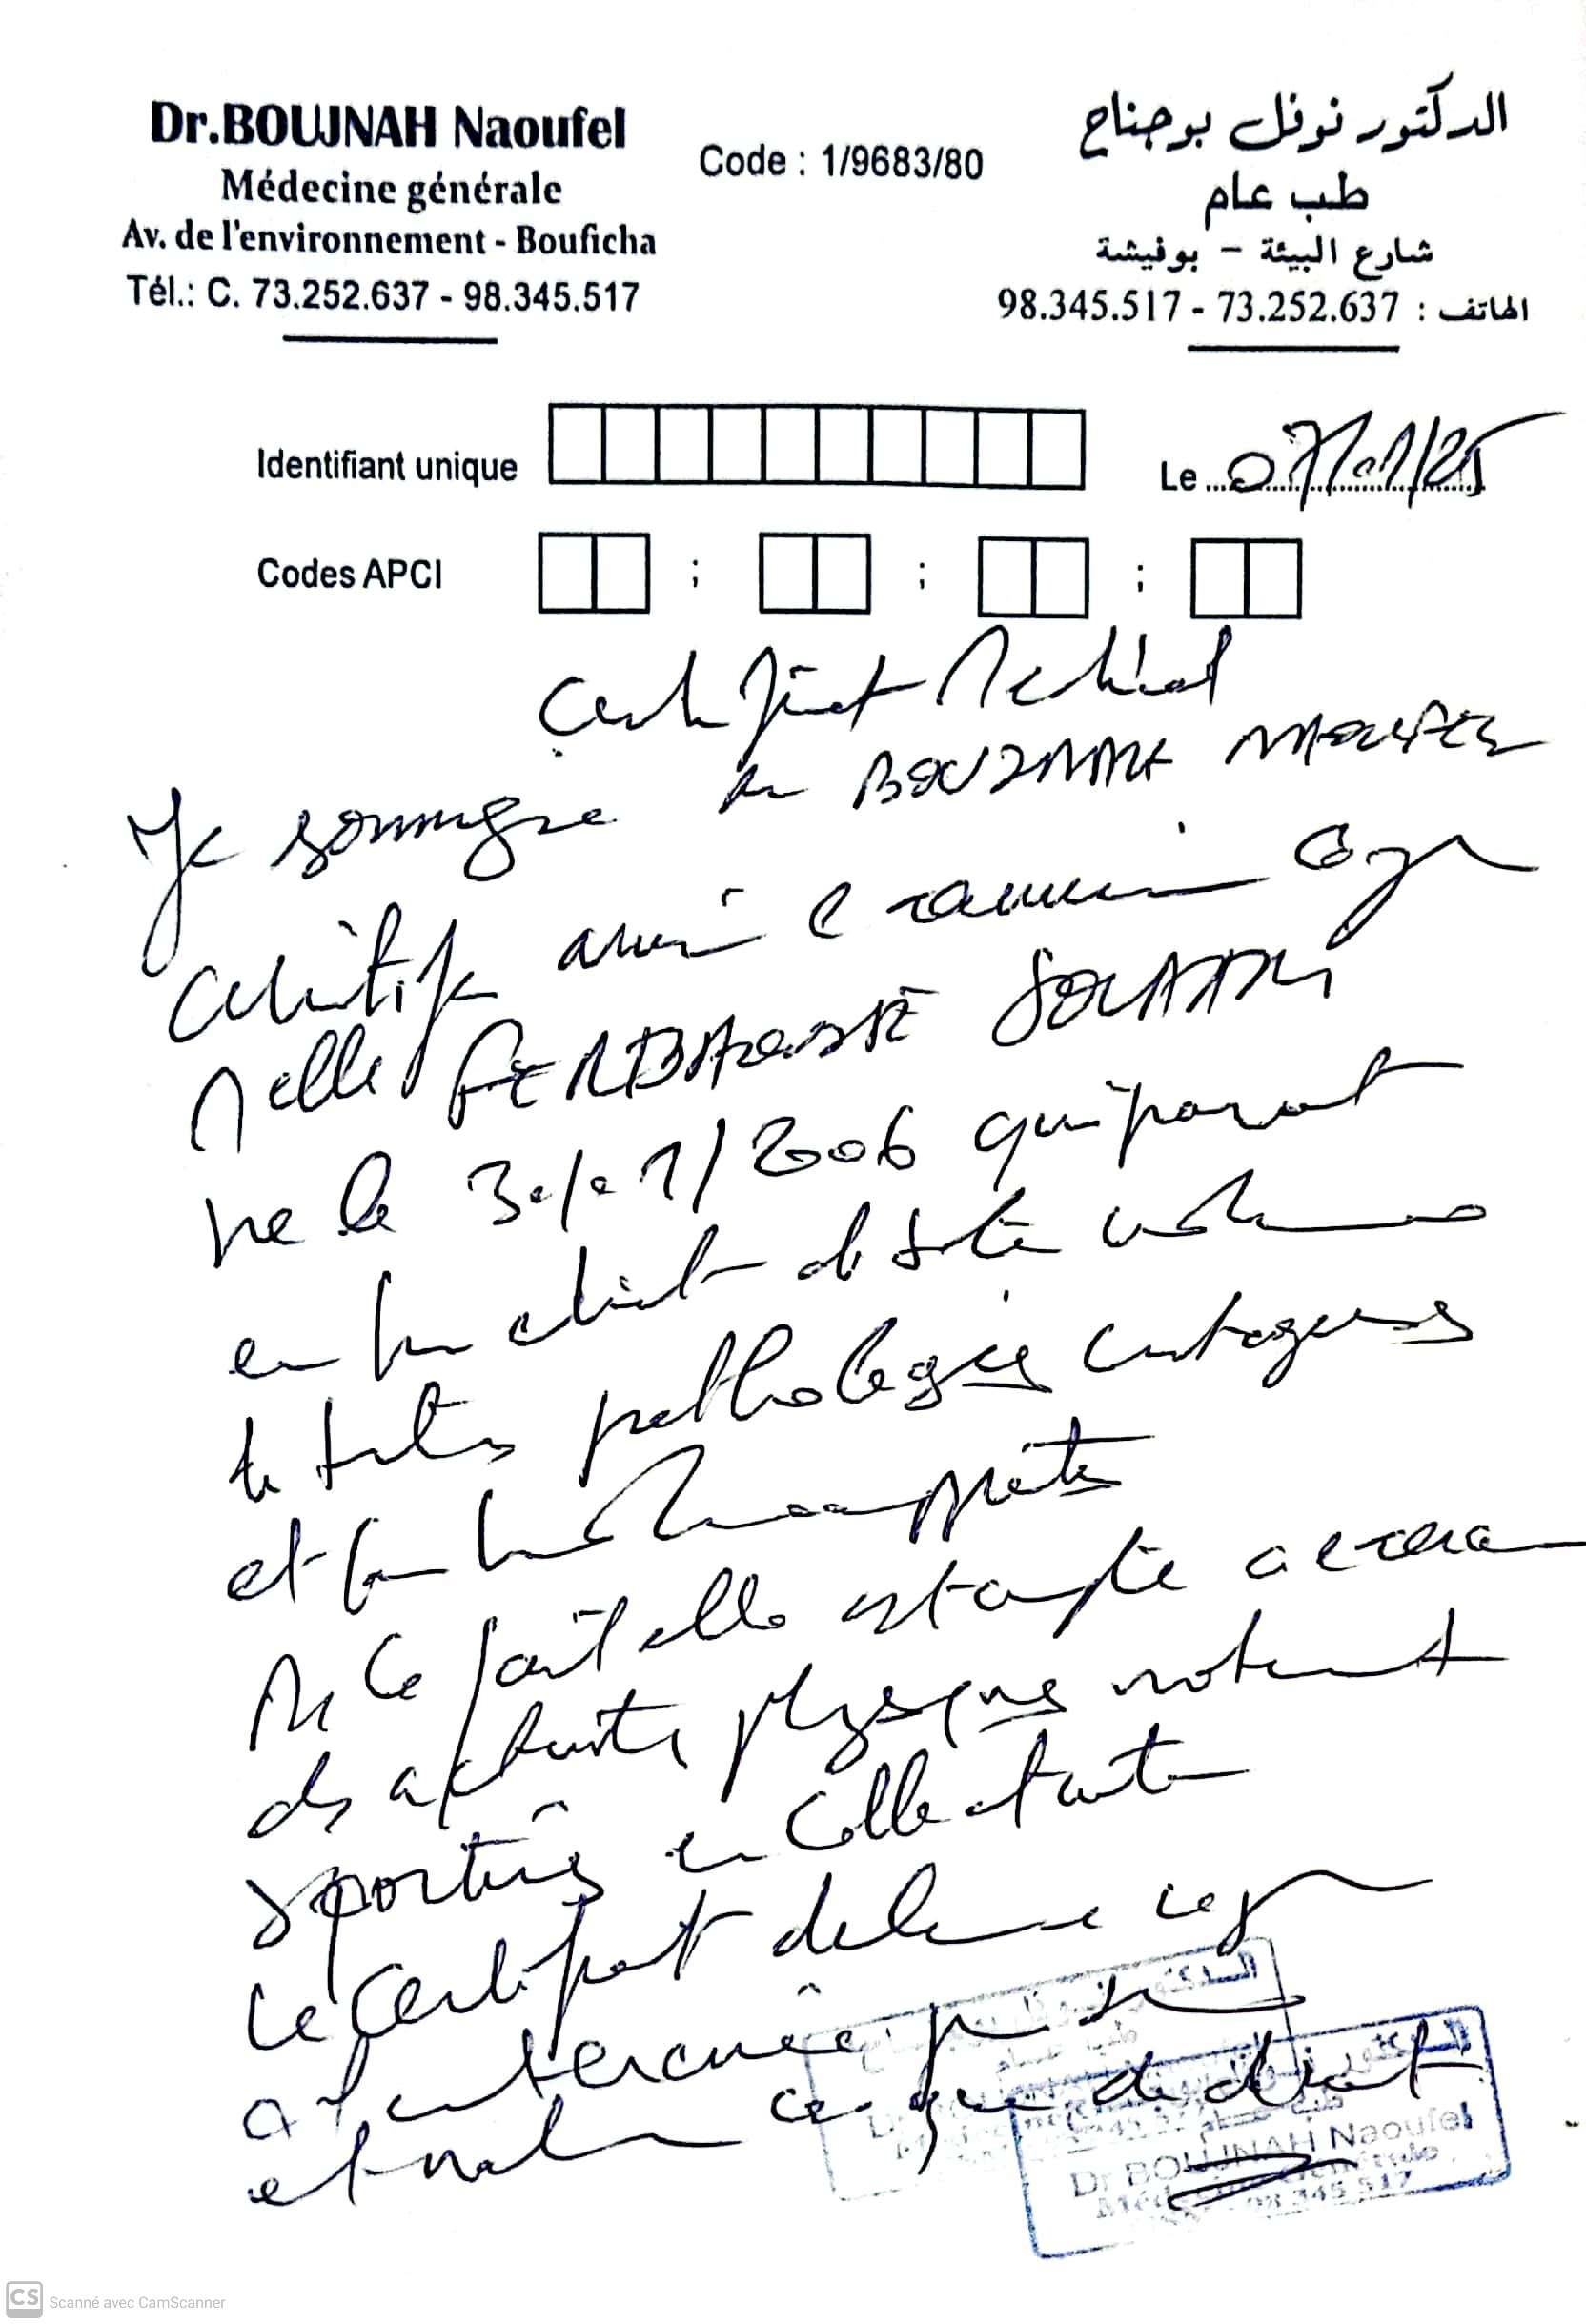 Dr.BOUJNAH Naoufel
Médecine générale
Av. de l'environnement - Bouficha
Tél.: C. 73.252.637 - 98.345.517
Code : 1/9683/80
الدكتور نوفل بوجناح
طب عام
شارع البيئة - بوفيشة
الهاتف : 73.252.637 - 98.345.517
Identifiant unique
Le 07/01/25
Codes APCI ; ; ;
Certificat Medical
Je soussigne Dr BOUJNAH NAOUFEL
certifie avoir examiner ce jr
Melle
ne le 30/01/2006 qui parait
en bon etat de sante
de toutes pathologies contagieuses
et
De ce fait elle est apte a exercer
des activités physiques notament
sportives en collectivité
Le certificat delivre ce jr
a l'interessée pr
et valoir ce que de droit
الدكتور نوفل بوجناح
طب عام
Dr BOUJNAH Naoufel
Médecine Générale
98 345 517
CS Scanné avec CamScanner